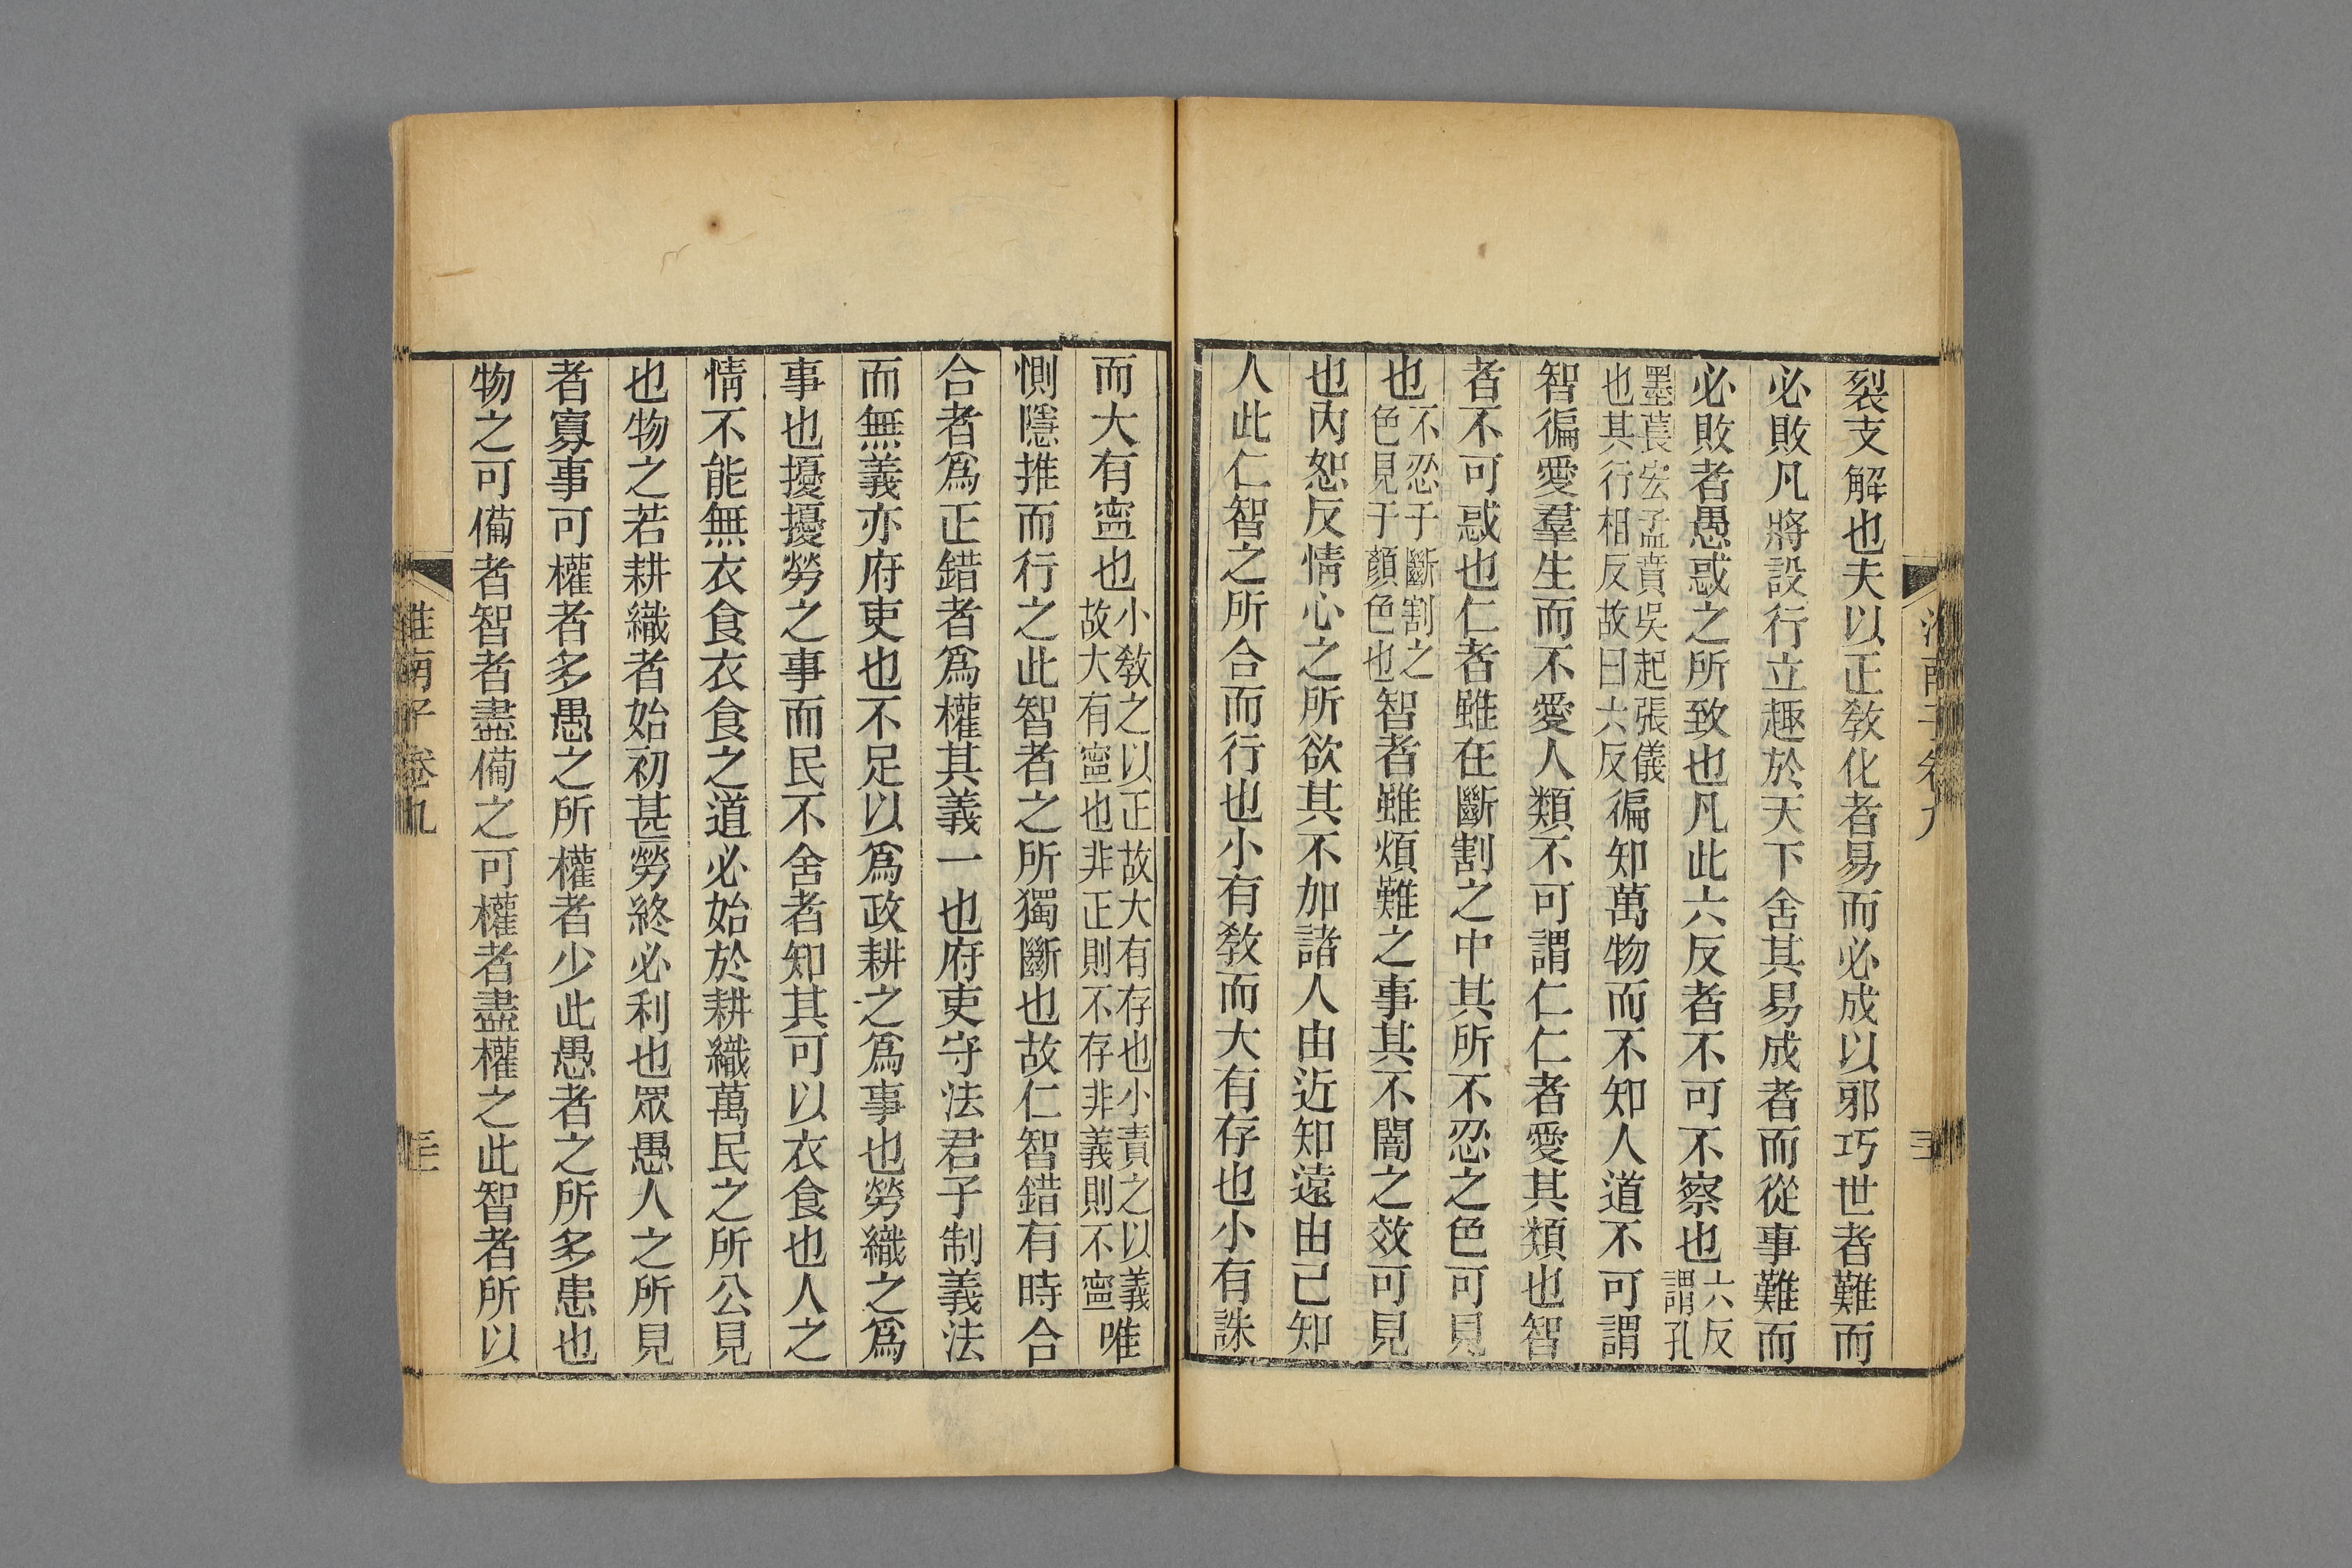 裂支解也夫以正敎化者易而必成以邪巧世者難而
必敗凡將設行立趣於天下舍其易成者而從事難而
必敗者愚惑之所致也凡此六反者不可不察也六反謂孔
墨萇宏孟賁吳起張儀也其行相反故曰六反徧知萬物而不知人道不可謂
智徧愛羣生而不愛人類不可謂仁仁者愛其類也智
者不可惑也仁者雖在斷割之中其所不忍之色可見
也不忍于斷割之色見于顏色也智者雖煩難之事其不闇之效可見
也內恕反情心之所欲其不加諸人由近知遠由己知
人此仁智之所合而行也小有敎而大有存也小有誅
而大有寍也小敎之以正故大有存也小責之以義故大有寍也非正則不存非義則不寍唯
惻隱推而行之此智者之所獨斷也故仁智錯有時合
合者爲正錯者爲權其義一也府吏守法君子制義法
而無義亦府吏也不足以爲政耕之爲事也勞織之爲
事也擾擾勞之事而民不舍者知其可以衣食也人之
情不能無衣食衣食之道必始於耕織萬民之所公見
也物之若耕織者始初甚勞終必利也眾愚人之所見
者寡事可權者多愚之所權者少此愚者之所多患也
物之可備者智者盡備之可權者盡權之此智者所以
淮南子卷九